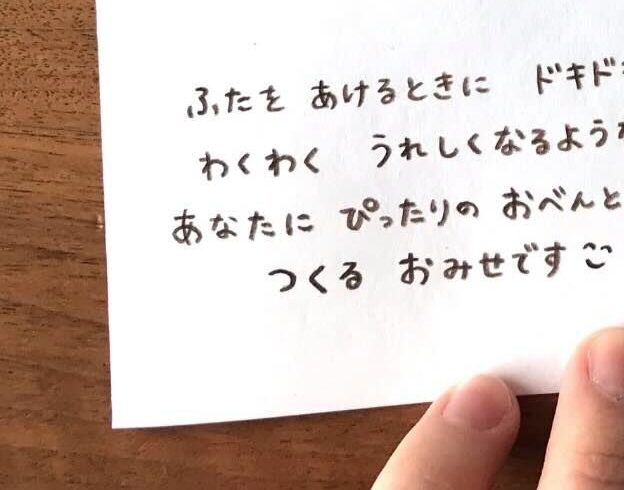 ふたを あけるときに ドキド
わくわく うれしくなるよう
あなたに ぴったりの おべんと
つくる おみせです